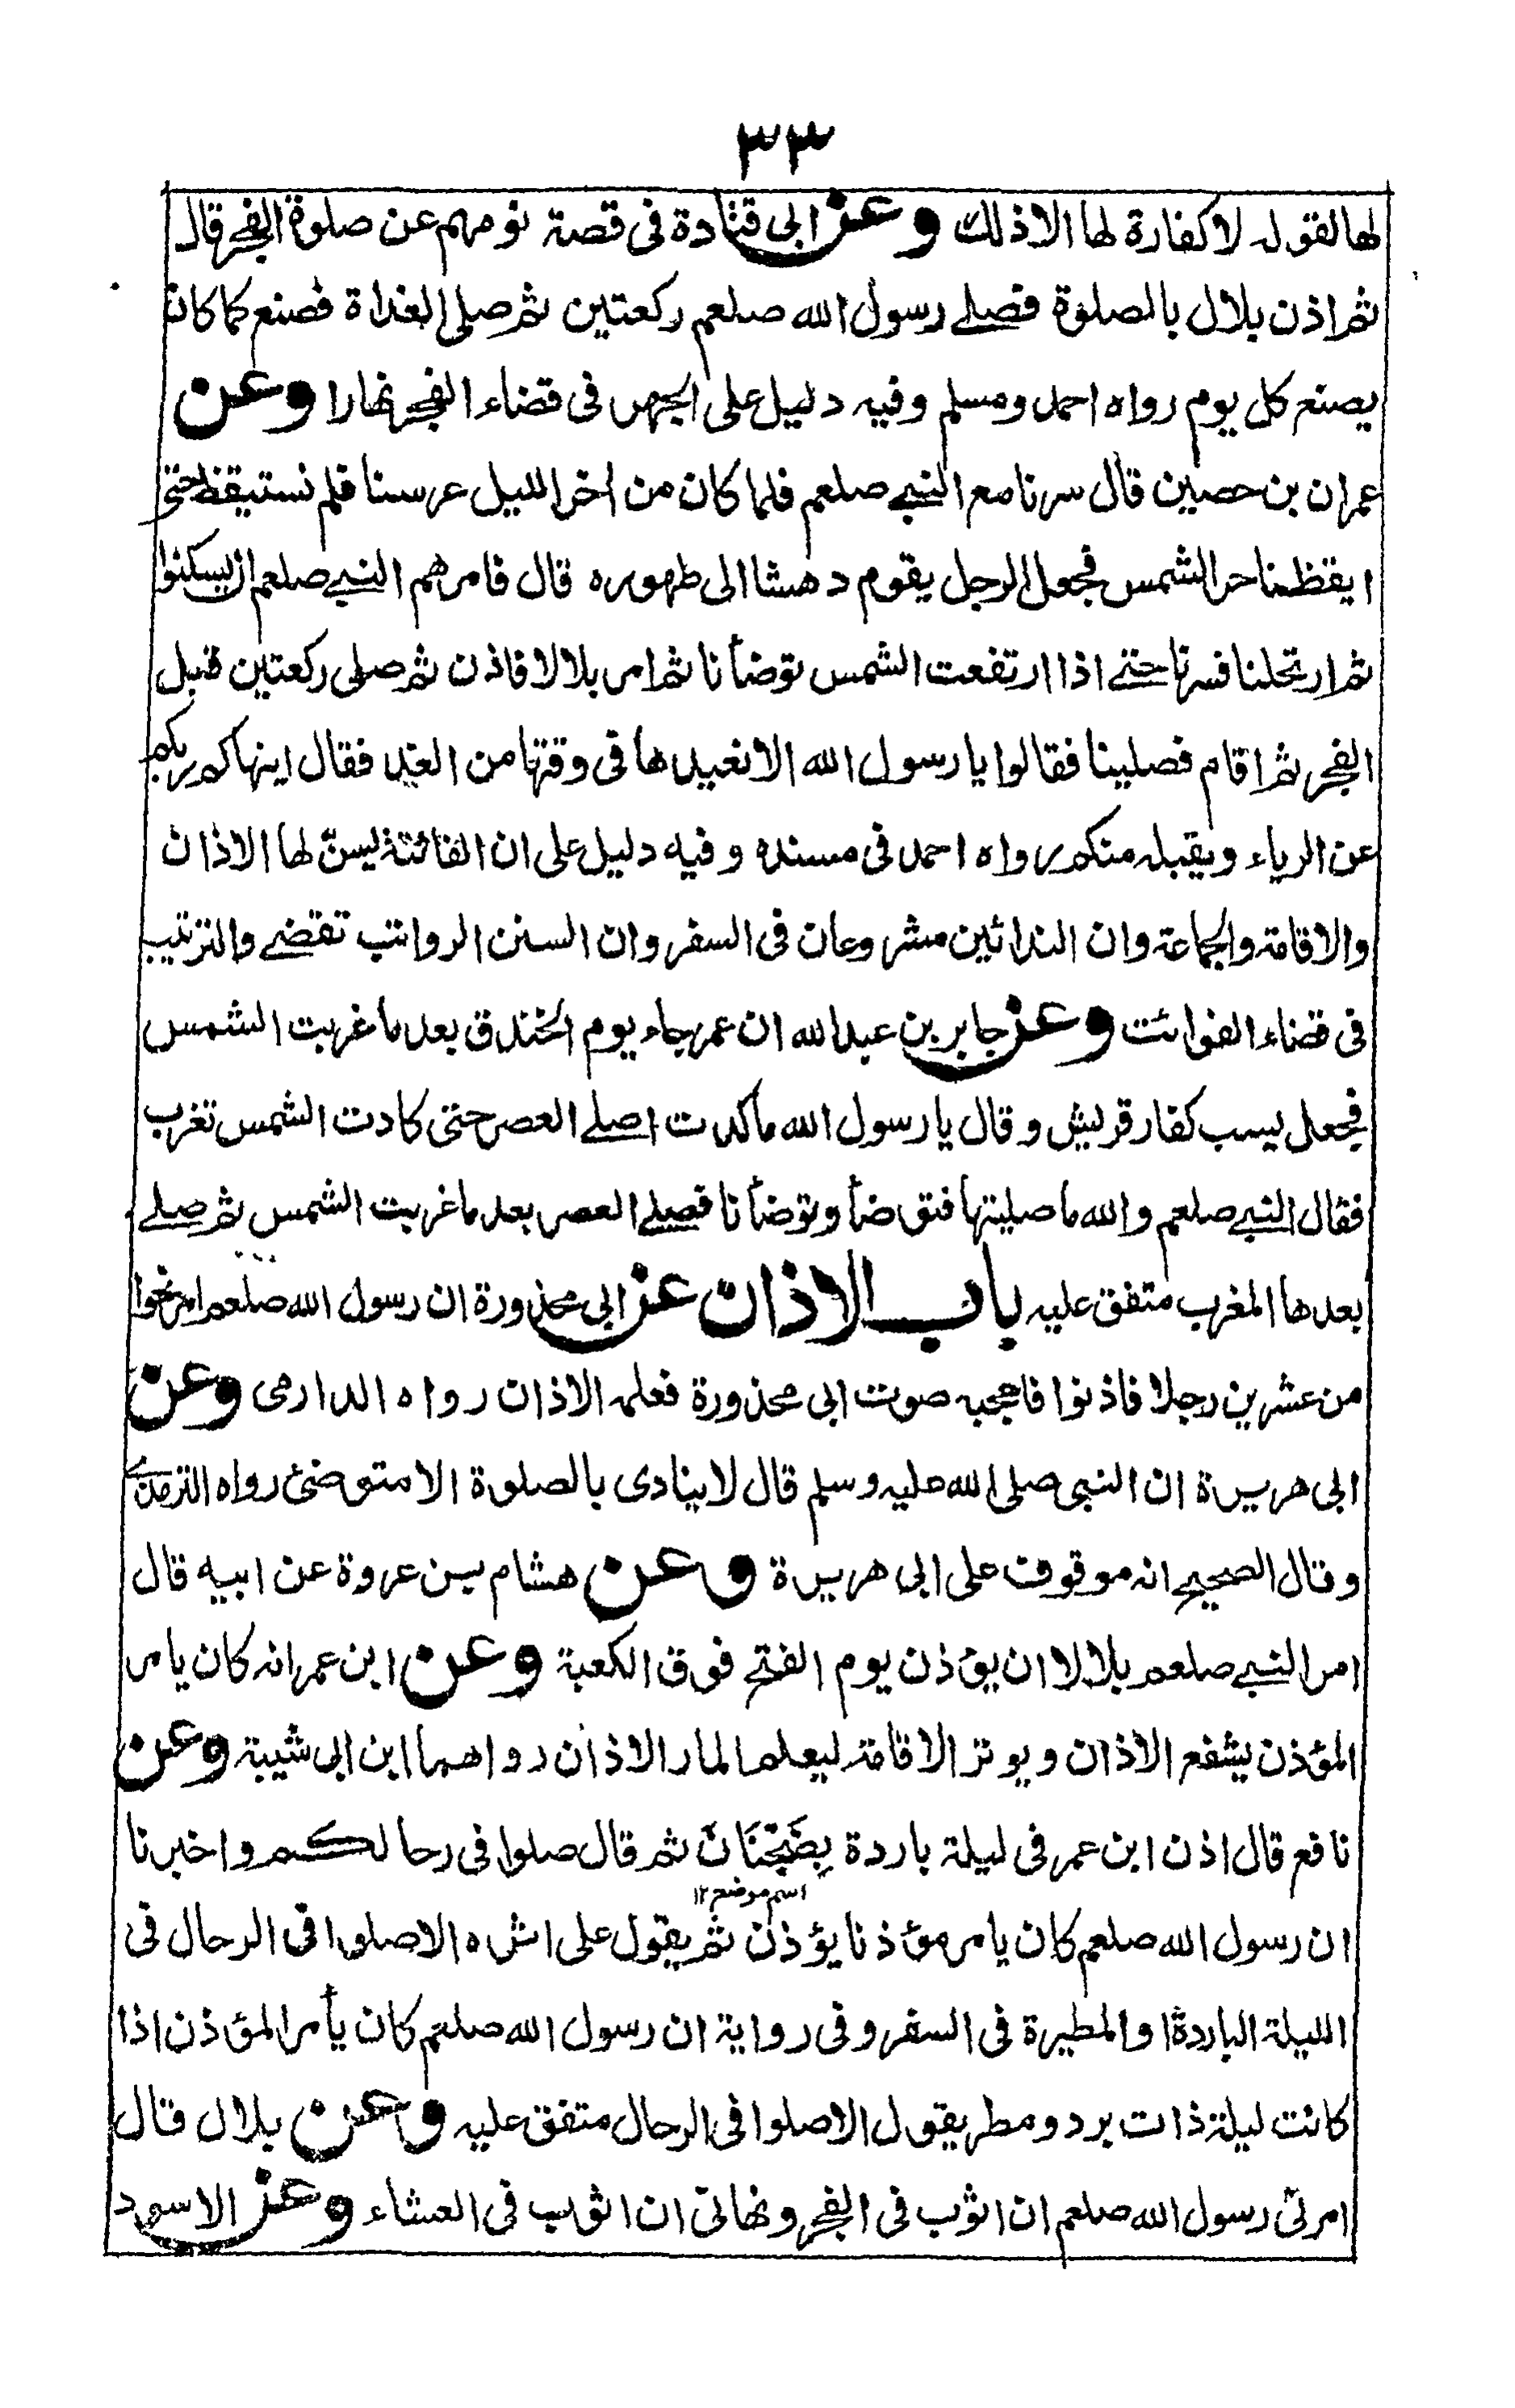 ٣٣
لها لقوله لا كفارة لها الا ذلك وعن ابى قتادة فى قصة نومهم عن صلوة الفجر قال
ثم اذن بلال بالصلوة فصلے رسول الله صلعم ركعتين ثم صلى الغداة فصنع كما كان
يصنع كل يوم رواه احمد ومسلم وفيه دليل على الجهر فى قضاء الفجر نهارا وعن
عمران بن حصين قال سرنا مع النبے صلعم فلما كان من اخر الليل عرسنا فلم نستيقظ حتى
ايقظنا حر الشمس فجعل الرجل يقوم دهشا الى طهوره قال فامرهم النبے صلعم ان يسكنوا
ثم ارتحلنا فسرنا حتے اذا ارتفعت الشمس توضأنا ثم امر بلالا فاذن ثم صلى ركعتين قبل
الفجر ثم اقام فصلينا فقالوا يا رسول الله الا نعيدها فى وقتها من الغد فقال اينهاكم ربكم
عن الرياء ويقبله منكم رواه احمد فى مسنده وفيه دليل على ان الفائتة ليسن لها الاذان
والاقامة والجماعة وان الندائين مشروعان فى السفر وان السنن الرواتب تقضے والترتيب
فى قضاء الفوائت وعن جابر بن عبد الله ان عمر جاء يوم الخندق بعد ما غربت الشمس
فجعل يسب كفار قريش وقال يا رسول الله ما كدت اصلے العصر حتى كادت الشمس تغرب
فقال النبے صلعم والله ما صليتها فتوضأ وتوضأنا فصلے العصر بعد ما غربت الشمس ثم صلے
بعدها المغرب متفق عليه باب الاذان عن ابى محذورة ان رسول الله صلعم امر نحوا
من عشرين رجلا فاذنوا فاعجبه صوت ابى محذورة فعلمه الاذان رواه الدارمى وعن
ابى هريرة ان النبى صلى الله عليه وسلم قال لا ينادى بالصلوة الا متوضئ رواه الترمذى
وقال الصحيح انه موقوف على ابى هريرة وعن هشام بن عروة عن ابيه قال
امر النبے صلعم بلالا ان يؤذن يوم الفتح فوق الكعبة وعن ابن عمر انه كان يامر
المؤذن يشفع الاذان ويوتر الاقامة ليعلم المار الاذان رواهما ابن ابى شيبة وعن
نافع قال اذن ابن عمر فى ليلة باردة بِضَجْنَانَ ثم قال صلوا فى رحالكم واخبرنا
اسم موضع ١٢
ان رسول الله صلعم كان يامر مؤذنا يؤذن ثم يقول على اثره الا صلوا فى الرحال فى
الليلة الباردة او المطيرة فى السفر وفى رواية ان رسول الله صلعم كان يأمر المؤذن اذا
كانت ليلة ذات برد ومطر يقول الا صلوا فى الرحال متفق عليه وعن بلال قال
امرنى رسول الله صلعم ان اثوب فى الفجر ونهانى ان اثوب فى العشاء وعن الاسود